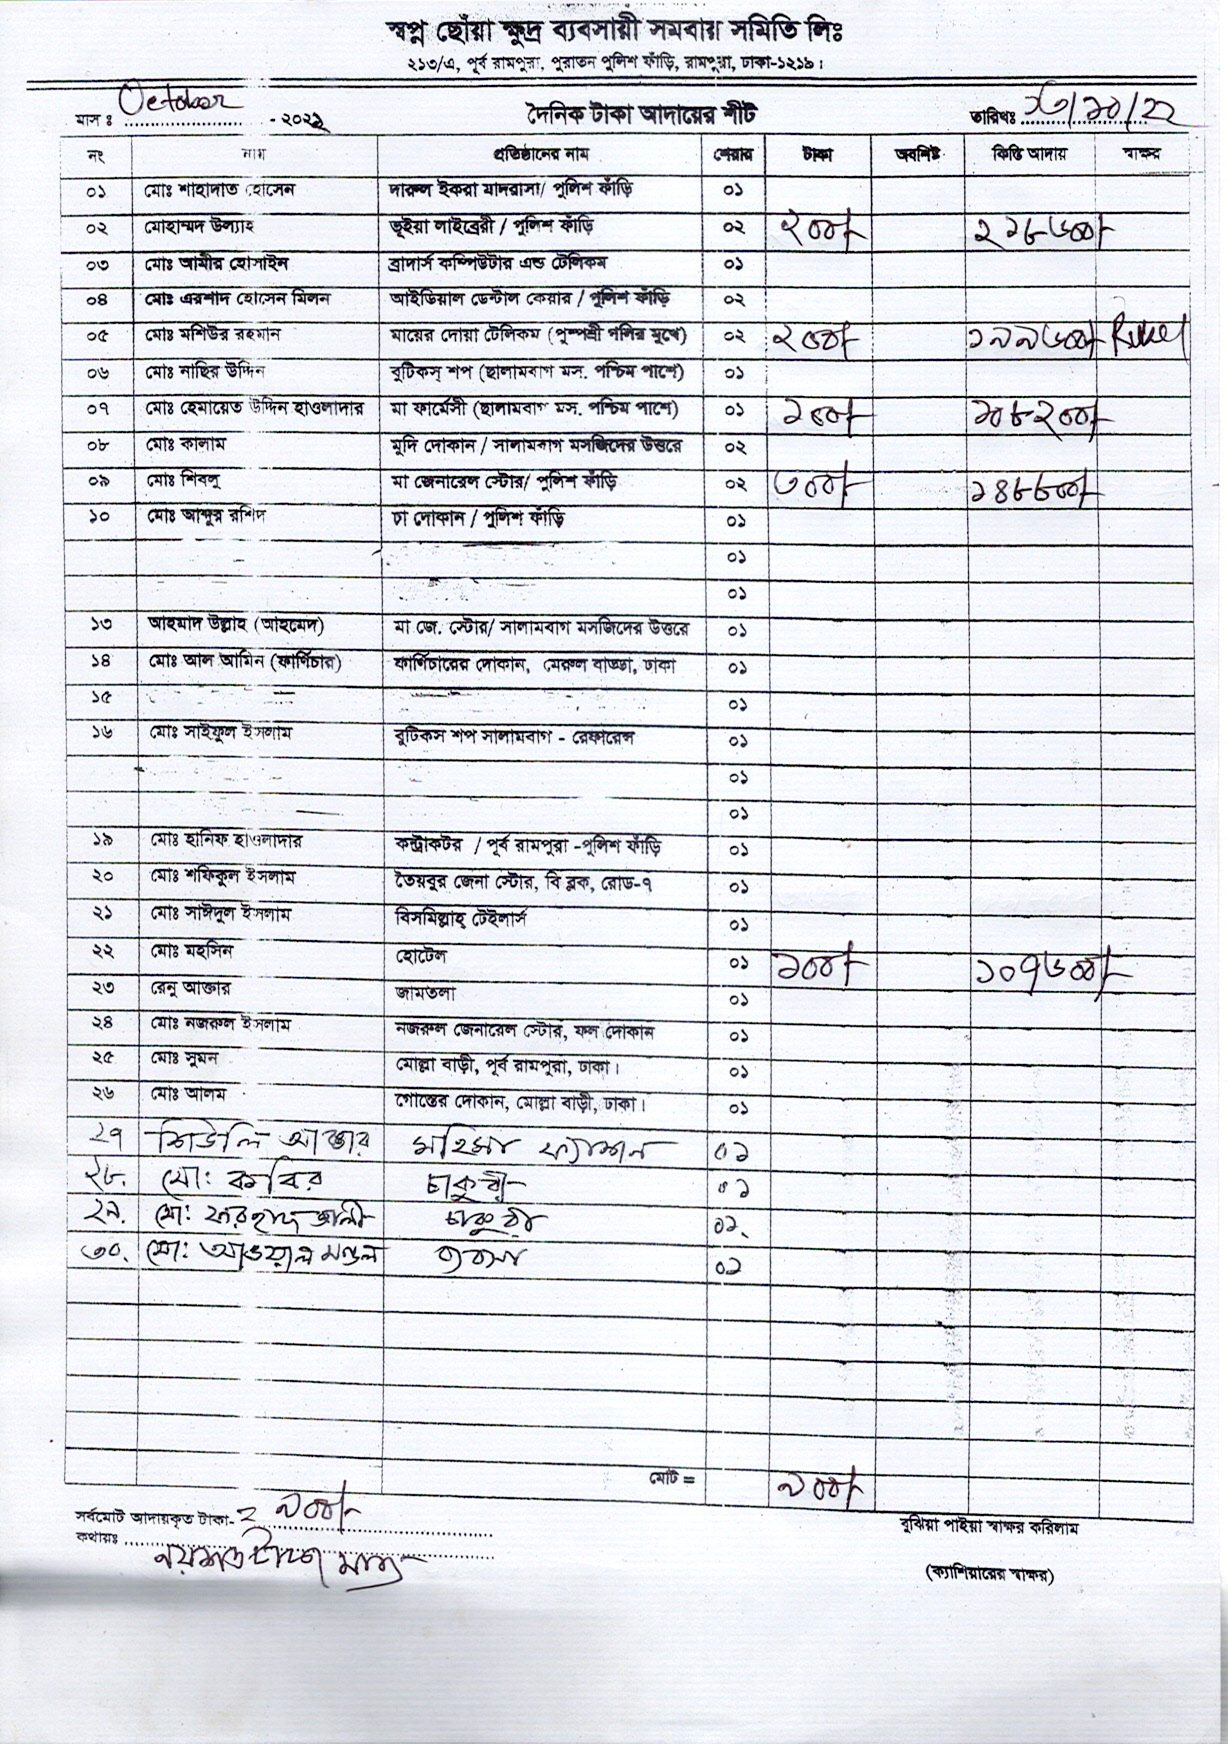 স্বপ্ন ছোঁয়া ক্ষুদ্র ব্যবসায়ী সমবায় সমিতি লিঃ
২১৩/এ, পূর্ব রামপুরা, পুরাতন পুলিশ ফাঁড়ি, রামপুরা, ঢাকা-১২১৯।
মাস ঃ October - ২০২২ দৈনিক টাকা আদায়ের শীট তারিখঃ /১০/২২
নং নাম প্রতিষ্ঠানের নাম শেয়ার টাকা অবশিষ্ট কিস্তি আদায় স্বাক্ষর
০১ মোঃ শাহাদাত হোসেন দারুল ইকরা মাদরাসা/ পুলিশ ফাঁড়ি ০১
০২ মোহাম্মদ উল্যাহ ভূইয়া লাইব্রেরী / পুলিশ ফাঁড়ি ০২ ২০০/- ২১৮৬০০/-
০৩ মোঃ আমীর হোসাইন ব্রাদার্স কম্পিউটার এন্ড টেলিকম ০১
০৪ মোঃ এরশাদ হোসেন মিলন আইডিয়াল ডেন্টাল কেয়ার / পুলিশ ফাঁড়ি ০২
০৫ মোঃ মশিউর রহমান মায়ের দোয়া টেলিকম (পুষ্পশ্রী গলির মুখে) ০২ ২০০/- ১৯৯৬০০/-
০৬ মোঃ নাছির উদ্দিন বুটিকস্ শপ (ছালামবাগ মস. পশ্চিম পাশে) ০১
০৭ মোঃ হেমায়েত উদ্দিন হাওলাদার মা ফার্মেসী (ছালামবাগ মস. পশ্চিম পাশে) ০১ ১০০/- ১০৮২০০/-
০৮ মোঃ কালাম মুদি দোকান / সালামবাগ মসজিদের উত্তরে ০২
০৯ মোঃ শিবলু মা জেনারেল স্টোর/ পুলিশ ফাঁড়ি ০২ ৩০০/- ১৪৮৮০০/-
১০ মোঃ আব্দুর রশিদ চা দোকান / পুলিশ ফাঁড়ি ০১
০১
০১
১৩ আহমাদ উল্লাহ (আহমেদ) মা জে. স্টোর/ সালামবাগ মসজিদের উত্তরে ০১
১৪ মোঃ আল আমিন (ফার্ণিচার) ফার্ণিচারের দোকান, মেরুল বাড্ডা, ঢাকা ০১
১৫ ০১
১৬ মোঃ সাইফুল ইসলাম বুটিকস শপ সালামবাগ - রেফারেন্স ০১
০১
০১
১৯ মোঃ হানিফ হাওলাদার কন্ট্রাকটর / পূর্ব রামপুরা -পুলিশ ফাঁড়ি ০১
২০ মোঃ শফিকুল ইসলাম তৈয়বুর জেনা স্টোর, বি ব্লক, রোড-৭ ০১
২১ মোঃ সাঈদুল ইসলাম বিসমিল্লাহ্ টেইলার্স ০১
২২ মোঃ মহসিন হোটেল ০১ ১০০/- ১০৭৬০০/-
২৩ রেনু আক্তার জামতলা ০১
২৪ মোঃ নজরুল ইসলাম নজরুল জেনারেল স্টোর, ফল দোকান ০১
২৫ মোঃ সুমন মোল্লা বাড়ী, পূর্ব রামপুরা, ঢাকা। ০১
২৬ মোঃ আলম গোস্তের দোকান, মোল্লা বাড়ী, ঢাকা। ০১
২৭ শিউলি আক্তার মহিমা ফ্যাশন ০১
২৮. মো: কবির চাকুরী ০১
২৯. মো: ফরহাদ আলী চাকুরী ০১.
৩০. মো: আওয়াল মন্ডল ব্যবসা ০১
মোট = ৯০০/-
সর্বমোট আদায়কৃত টাকা- ৯০০/- বুঝিয়া পাইয়া স্বাক্ষর করিলাম
কথায়ঃ নয়শত টাকা মাত্র
(ক্যাশিয়ারের স্বাক্ষর)